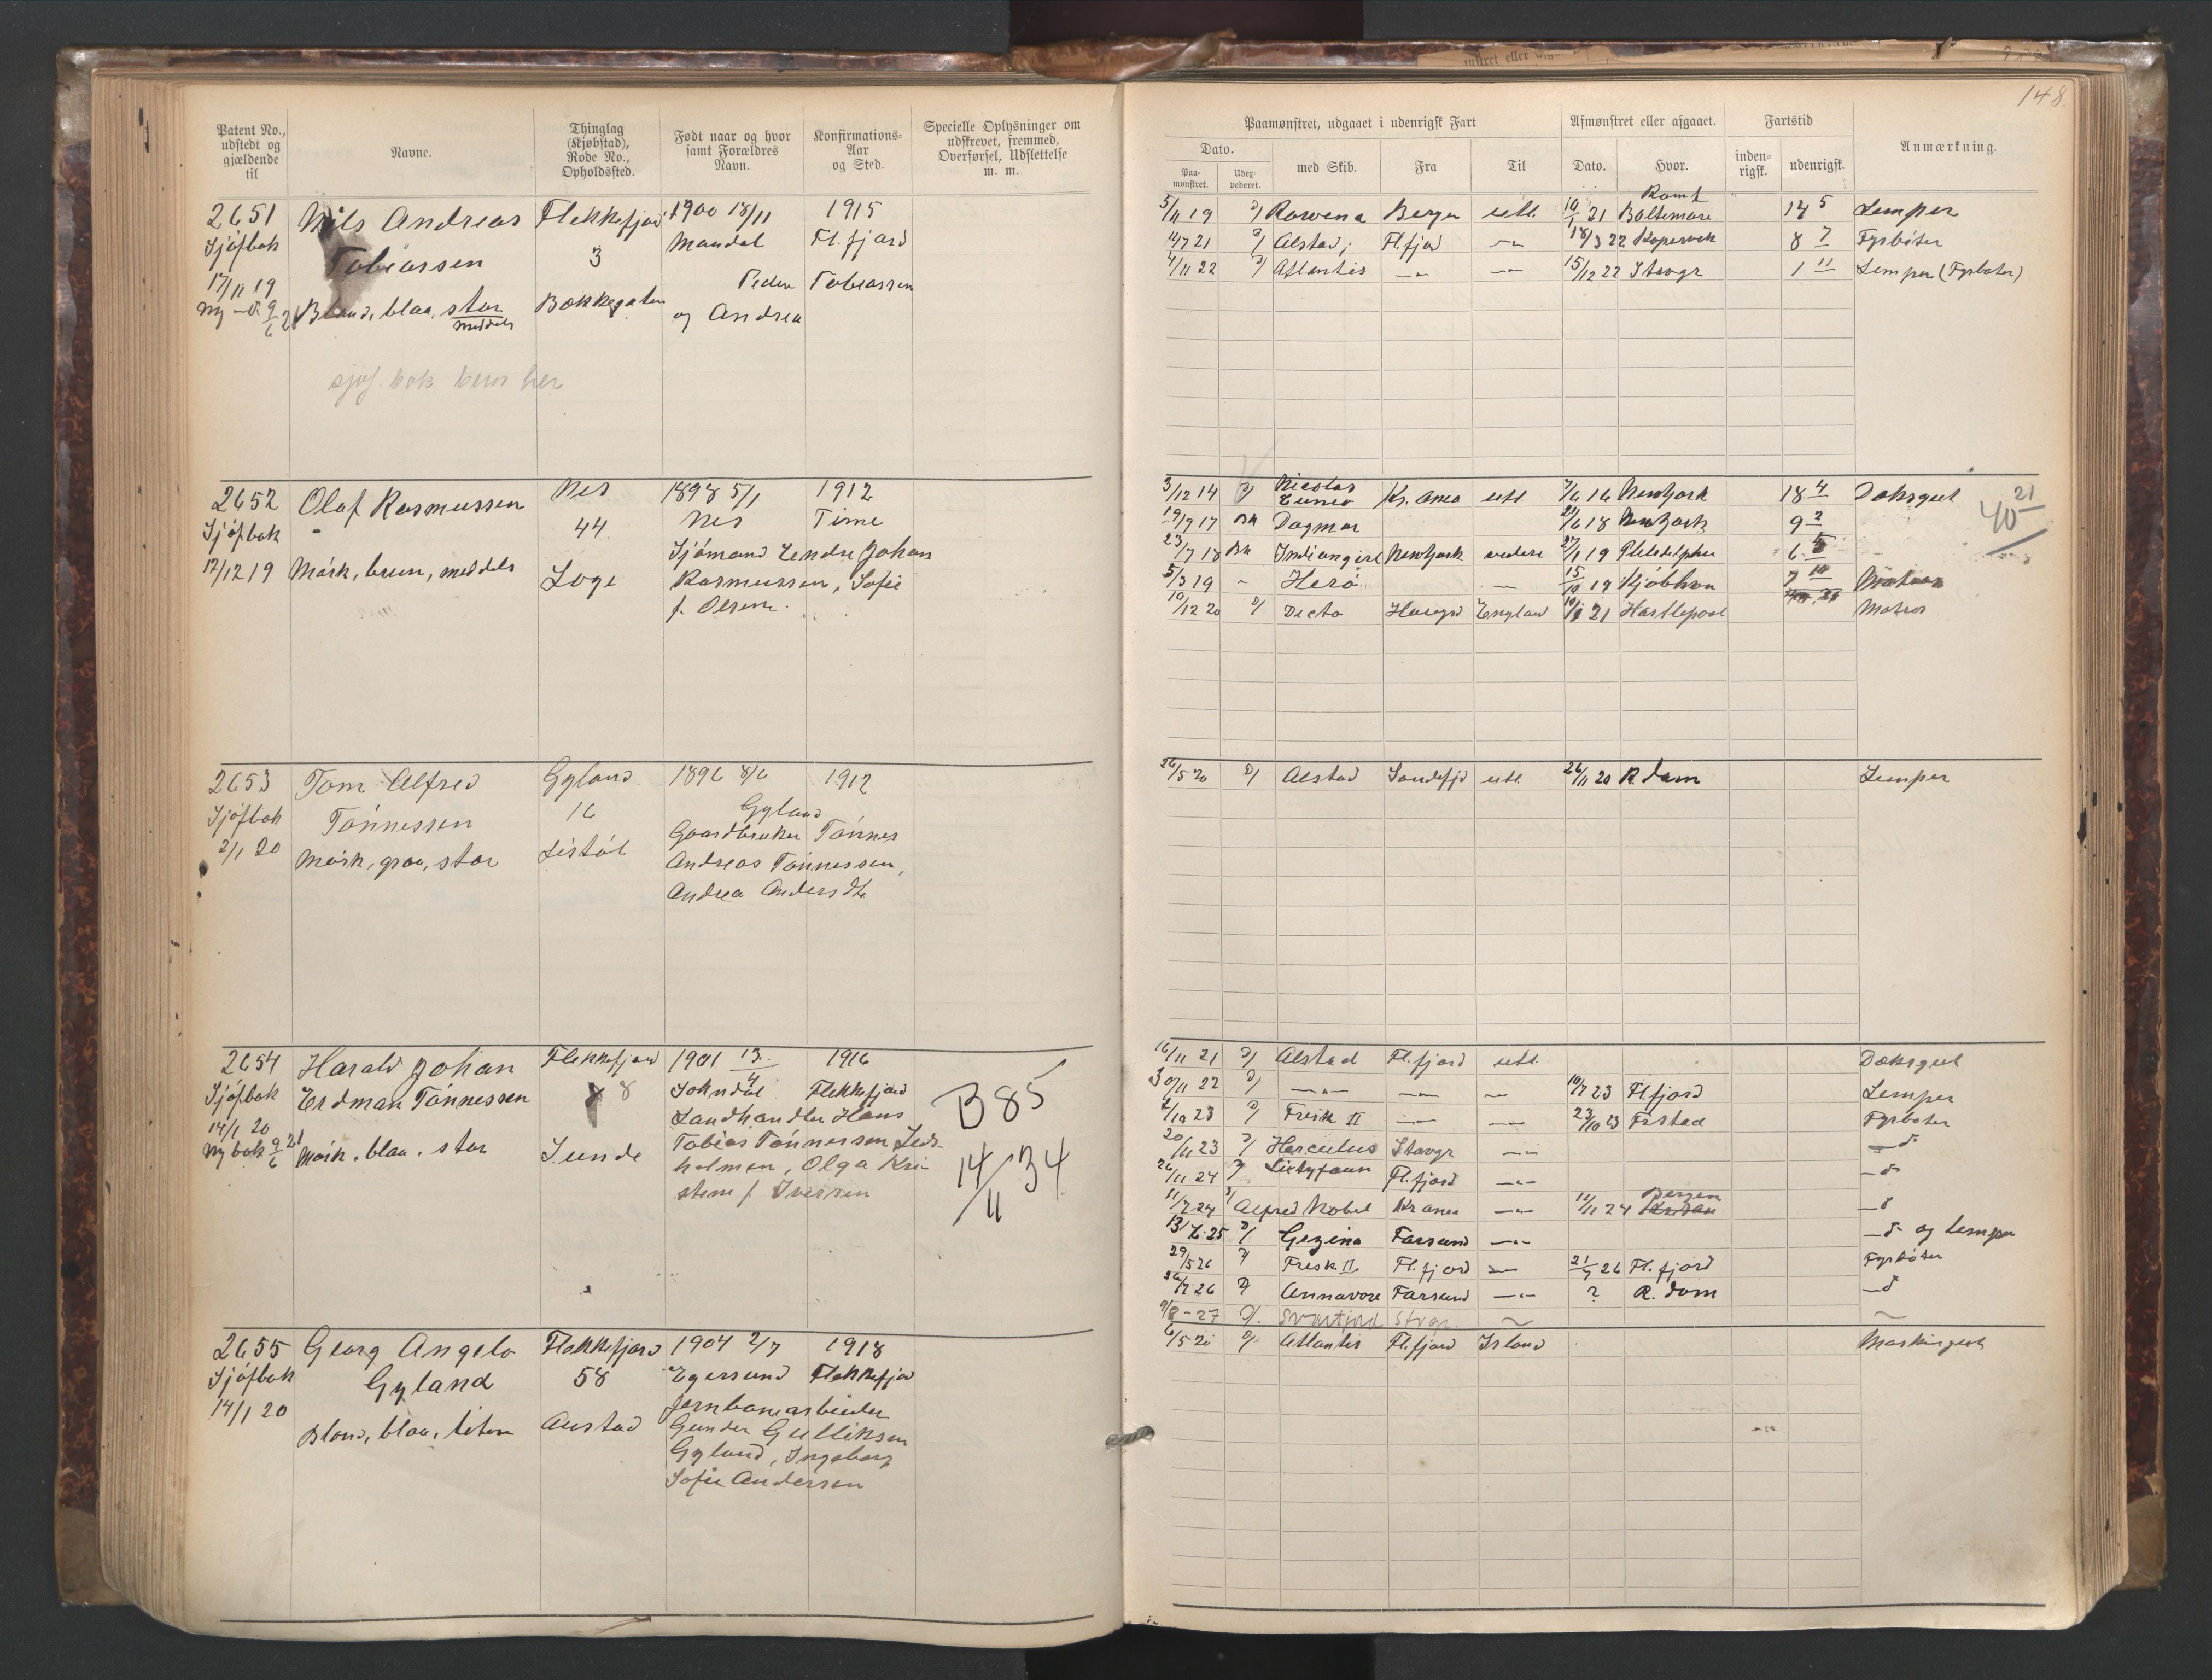 148
Patent No., udstedt og gjældende til
Navne.
Thinglag (Kjøbstad), Rode No., Opholdssted.
Født naar og hvor samt Forældres Navn.
Konfirmations-Aar og Sted.
Specielle Oplysninger om udskrevet, fremmed, Overførsel, Udslettelse m. m.
Paamønstret, udgaaet i udenrigsk Fart
Afmønstret eller afgaaet.
Fartstid
Anmærkning.
Dato.
med Skib.
Fra
Til
Dato.
Hvor.
inden-rigsk.
udenrigsk.
Paa-mønstret.
Udex-pederet.
2651 Nils Andreas Flekkefjord 1900 18/11 1915
Sjøfbok Tobiassen 3 Mandal Fl.fjord
17/11 19 Peder Tobiassen
Ny -d- 9/6 21 Blond, blaa, stor Bakkegaten og Andrea
meddels
sjøf. bok beror her
5/11 19 D/ Rowena Bergen utl. 10/1 21 Baltimore 14 5 Lemper
D/ Alstad; Fl.fjord -"- 18/3 22 Kopervik 8 7 Fyrbøter
4/11 22 D/ Atlantis -"- -"- 15/12 22 Stavgr 1 11 Lemper (Fyrbøter)
2652 Olaf Rasmussen Nes 1898 5/1 1912
Sjøfbok 44 Nes Time
Sjömand Endre Johan
17/12 19 Mørk, brun, meddels Loge Rasmussen, Sofie
f. Olsen.
3/12 14 D/ Nicolas Cuneo Kr.ania utl. 7/6 16 New York 18 4 Dæksgut
19/9 17 Bk Dagmar 21/6 18 New York 9 2
40 21
23/7 18 Bk Indiangirl New York videre 27/1 19 Philidelphia 6 5
5/3 19 - Herö - 15/10 19 Kjöbhvn 7 10 Matros
10/12 20 D/ Dicto Haugsd England 21 Hartlepool Matros
2653 Tom Alfred Gyland 1896 8/6 1912
Sjøfbok Tønnessen 16 Gyland
2/1 20 Mørk, graa, stor Listøl Gaardbruker Tønnes
Andreas Tønnessen,
Andrea Andersdt.
26/5 20 D/ Alstad Sandefjd utl 26/11 20 R.dam Lemper
2654 Harald Johan Flekkefjord 1901 13/4 1916
Sjøfbok Erdman Tønnessen 8 Sokndal Flekkefjord
14/1 20 Landhandler Hans
Ny bok 9/6 21 Mørk, blaa, stor Sunde Tobias Tønnessen Lids-
holmen, Olga Kri-
stine f. Iversen
B 85
14/11 34
16/11 21 D/ Alstad Fl.fjord utl. Dæksgut
30/11 22 D/ -"- -"- -"- 10/7 23 Fl.fjord Lemper
2/10 23 D/ Frisk II -"- -"- 23/10 23 Fyrbøter
20/11 23 D/ Herculus Stavgr -"- -d-
26/11 24 D/ Fl.fjord -"- -d-
11/7 24 D/ Alfred Nobel Kr.ania -"- 11/11 24 Bergen -d-
13/6 25 D/ Gezina Farsund -"- -d- og lemper
29/5 26 D/ Frisk II Fl.fjord -"- 21/7 26 Fl.fjord Fyrbøter
26/7 26 D/ Annavore Farsund -"- ? R.dam -d-
9/8 - 27 D/. Svartfond Stvgr. ~ ~
2655 Georg Angelo Flekkefjord 1904 2/7 1918
Sjøfbok Gyland 58 Egersund Flekkefjor
14/1 20 Jernbanearbeider
Blond, blaa, liten Austad Gunder Gulliksen
Gyland, Ingeborg
Sofie Andersen
6/5 20 D/ Atlantis Fl.fjord Island Maskingut